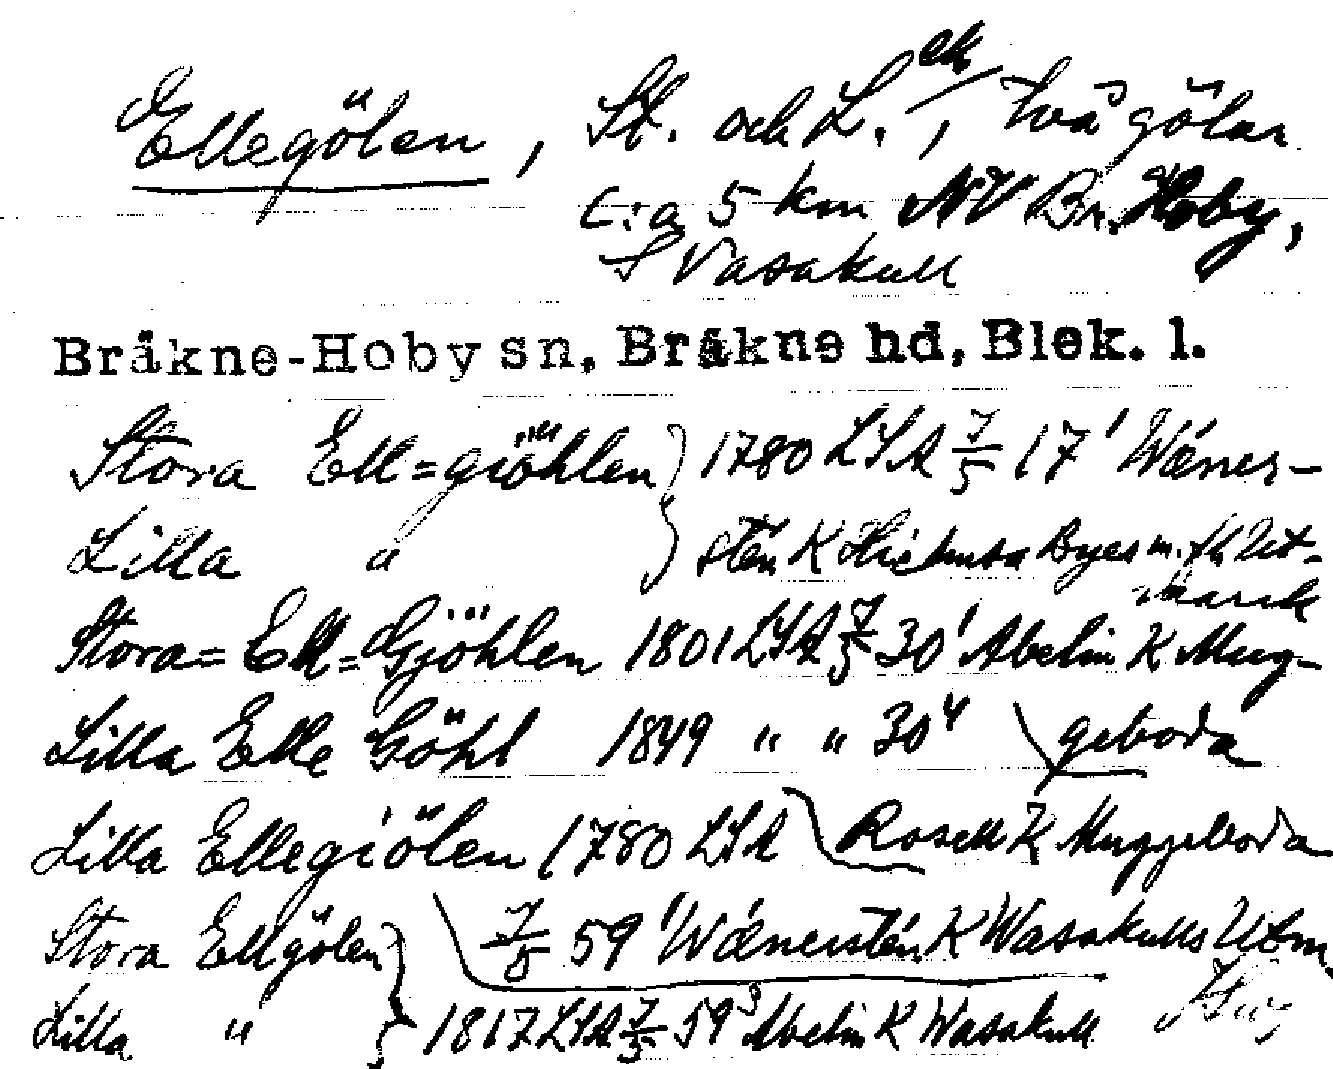 ek
Ellegölen, St. och L., två gölar
c:a 5 km NV Br. Hoby,
S Vasakull
Bråkne-Hoby sn, Bråkne hd, Blek. l.
Stora Ell=giöhlen } 1780 LSA 7/5 17¹ Wæners-
Lilla " } stén K Byes m. fl. Ut-
mark
Stora=Ell=Gjöhlen 1801 LSA 7/5 30¹ Abelin K Mug-
Lilla Elle Göhl 1849 " " 30⁴ geboda
Lilla Ellegiölen 1780 LSA Rosell K Muggeboda
Stora Ellgölen } 7/5 59¹ Wænerstén K Wasakulls Utm.
Lilla " } 1817 LSA 7/5 59³ Abelin K Wasakull